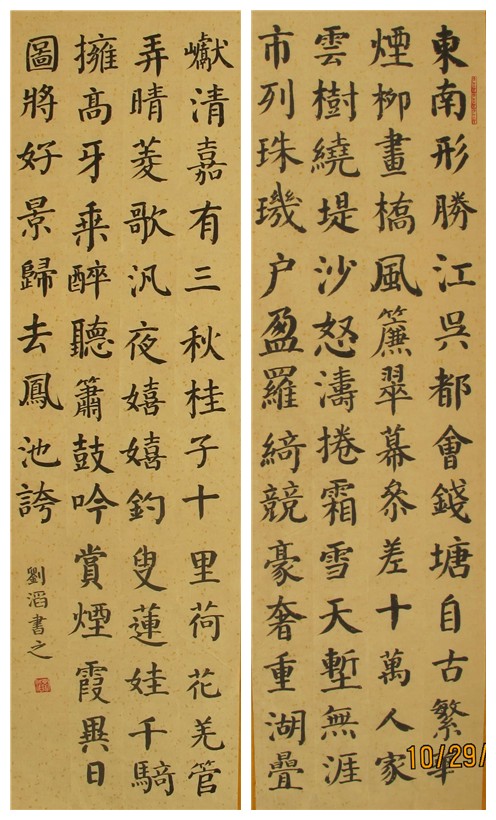 東南形勝江吳都會錢塘自古繁華
煙柳畫橋風簾翠幕參差十萬人家
雲樹繞堤沙怒濤捲霜雪天塹無涯
市列珠璣户盈羅綺競豪奢重湖疊
巘清嘉有三秋桂子十里荷花羌管
弄晴菱歌汎夜嬉嬉釣叟蓮娃千騎
擁髙牙乘醉聽簫鼓吟賞煙霞異日
圖將好景歸去鳳池誇
劉滔書之
10/29/